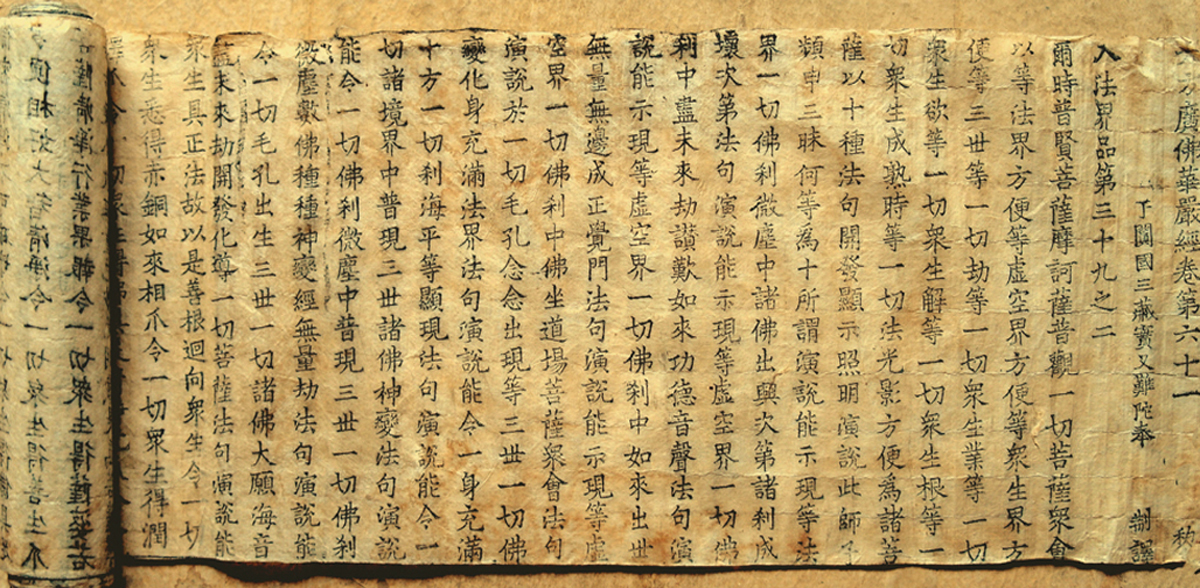 廣佛華嚴經卷第六十一
于闐國三藏寶叉難陀奉 制譯
入法界品第三十九之二
爾時普賢菩薩摩訶薩普觀一切菩薩衆會
以等法界方便等虛空界方便等衆生界方
便等三世等一切劫等一切衆生業等一切
衆生欲等一切衆生解等一切衆生根等一
切衆生成熟時等一切法光影方便爲諸菩
薩以十種法句開發顯示照明演說此師子
類申三昧何等爲十所謂演說能示現等法
界一切佛刹微塵中諸佛出興次第諸刹成
壞次第法句演說能示現等虛空界一切佛
刹中盡未來劫讚歎如來功德音聲法句演
說能示現等虛空界一切佛刹中如來出世
無量無邊成正覺門法句演說能示現等虛
空界一切佛刹中佛坐道場菩薩衆會法句
演說於一切毛孔念念出現等三世一切佛
變化身充滿法界法句演說能令一身充滿
十方一切刹海平等顯現法句演說能令一
切諸境界中普現三世諸佛神變法句演說
能令一切佛刹微塵中普現三世一切佛刹
微塵數佛種種神變經無量劫法句演說能
令一切毛孔出生三世一切諸佛大願海音
盡未來劫開發化導一切菩薩法句演說能
衆生具正法故以是善根迴向衆生令一切
衆生悉得赤銅如來相爪令一切衆生得潤